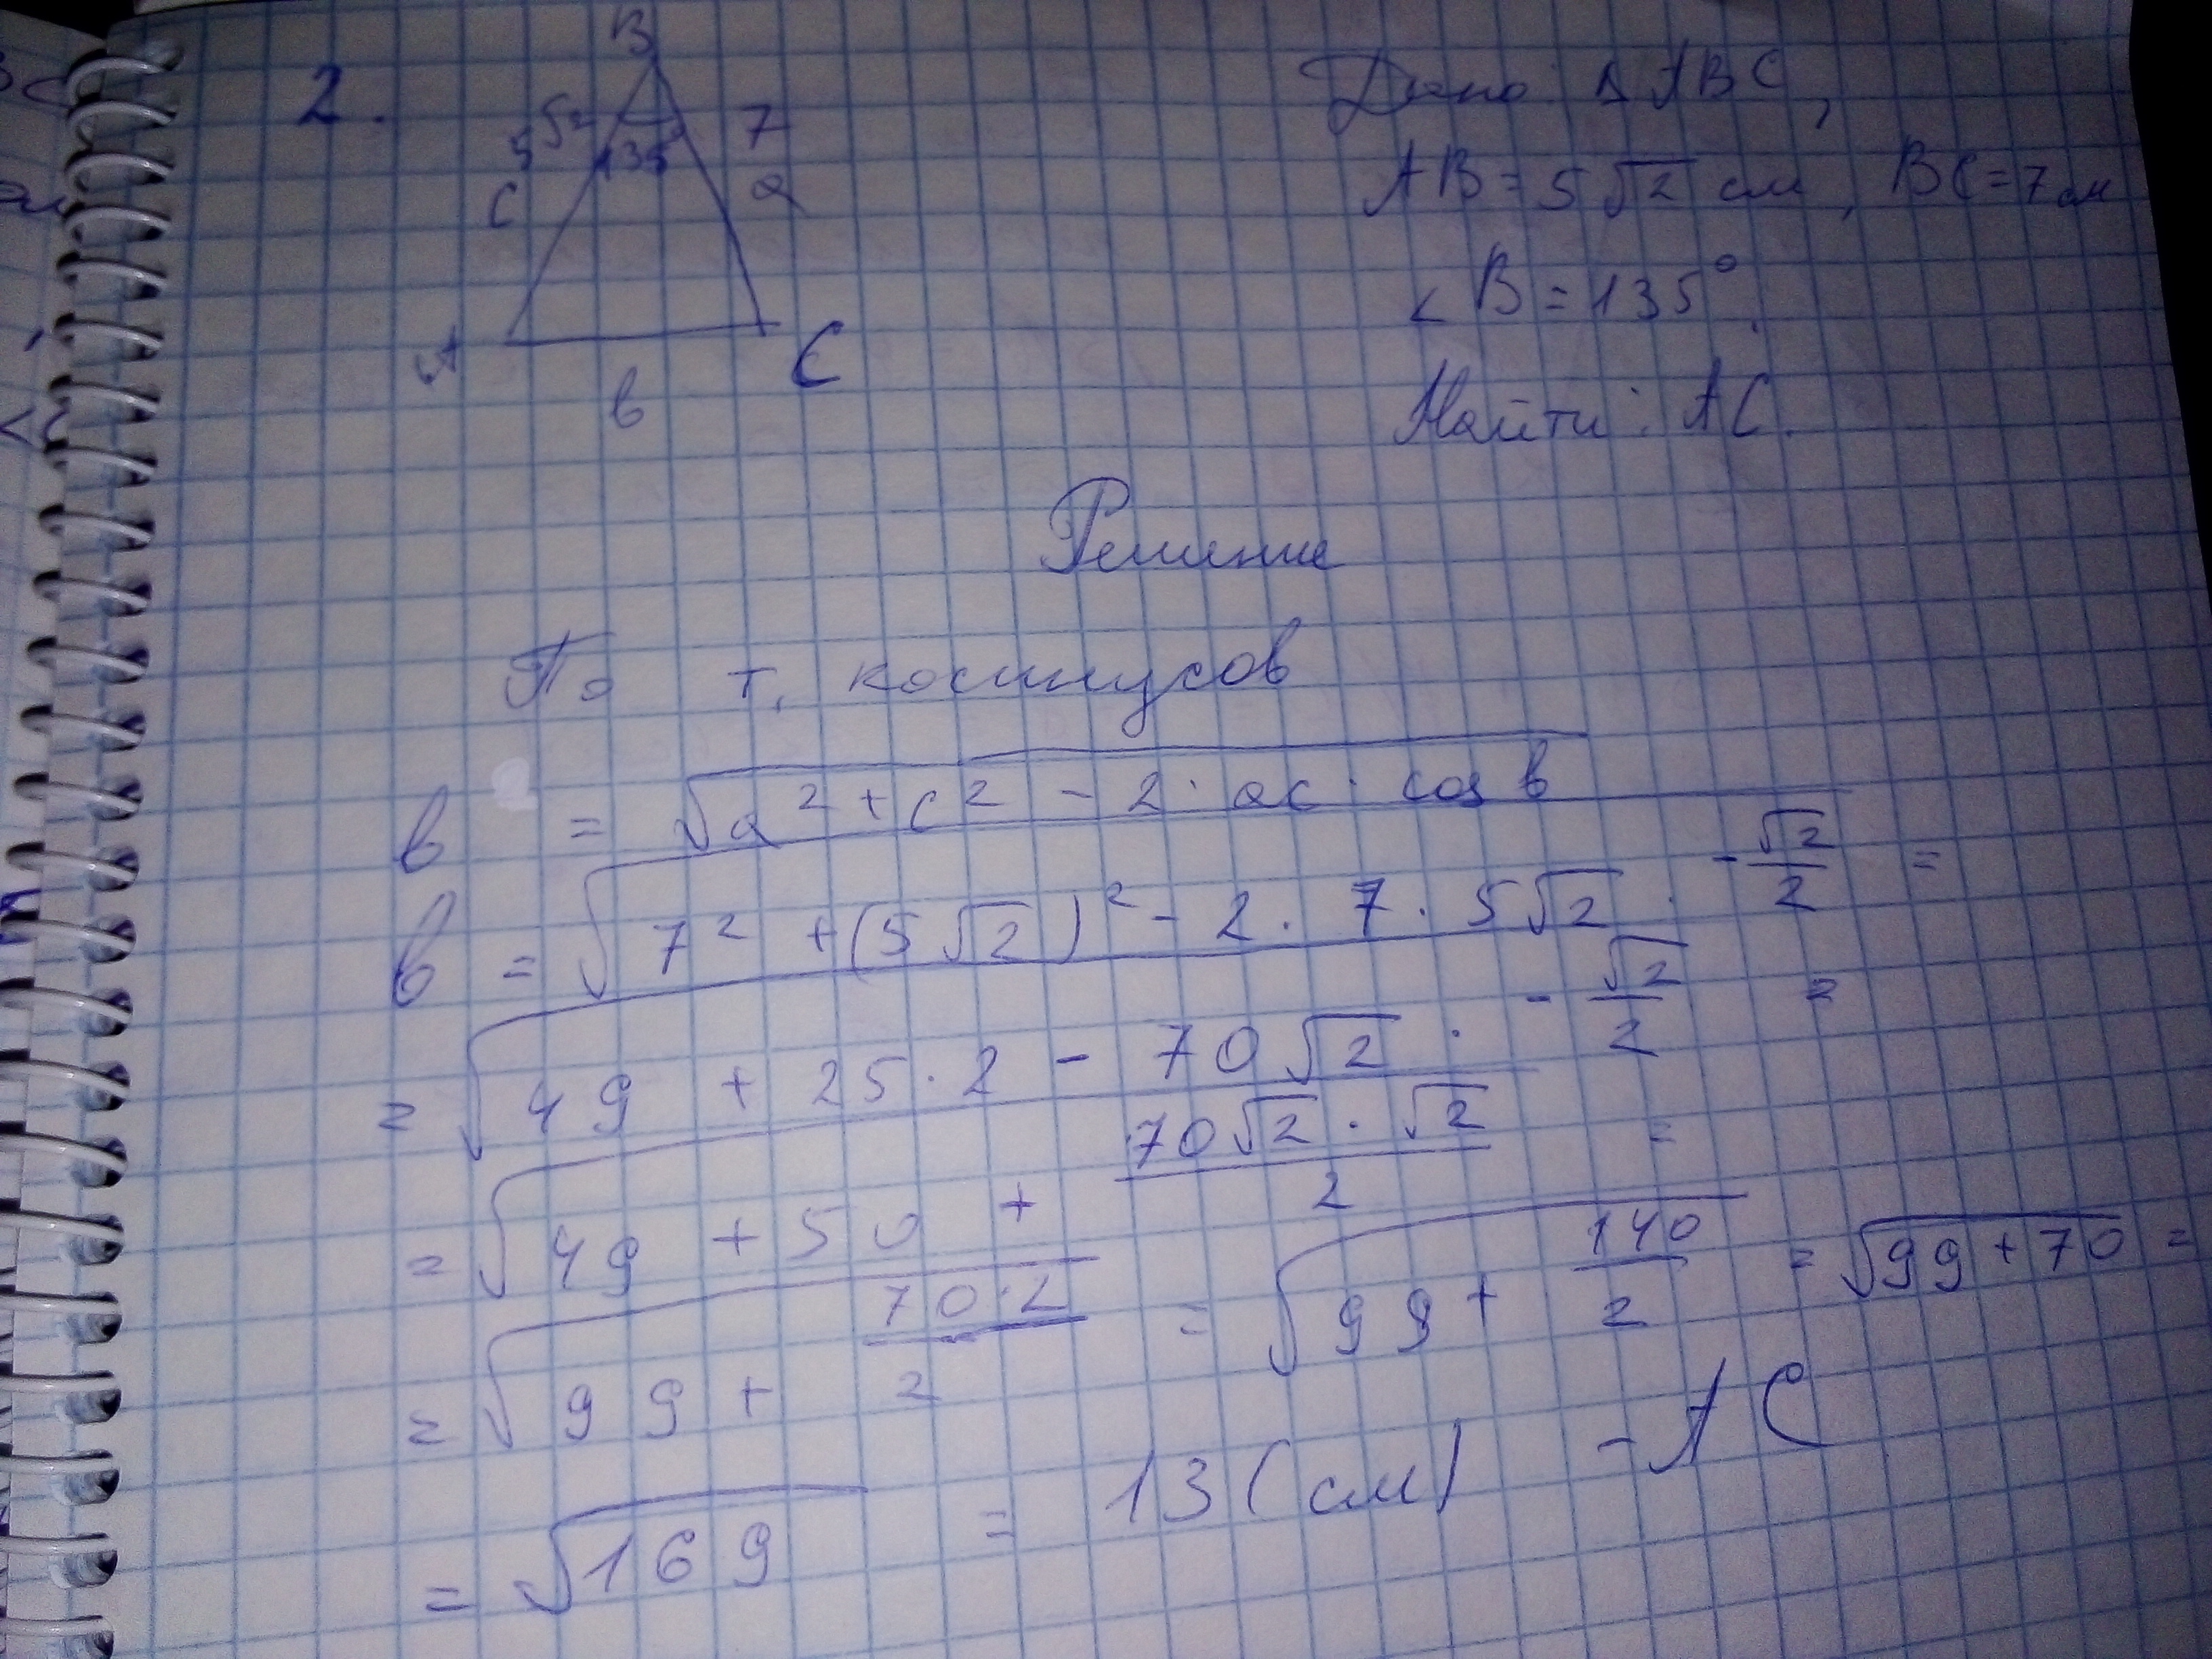 2.
B
5√2 135 7
c a
A C
в
Дано: Δ ABC,
AB = 5√2 см, BC = 7 см
∠B = 135°.
Найти: AC.
Решение
По т. косинусов
в = √(a² + c² - 2 · ac · cos в)
в = √(7² + (5√2)² - 2 · 7 · 5√2 · -√2/2) =
= √(49 + 25 · 2 - 70√2 · -√2/2) =
= √(49 + 50 + (70√2 · √2)/2) =
= √(99 + (70·2)/2) = √(99 + 140/2) = √(99 + 70) =
= √169 = 13 (см) - AC